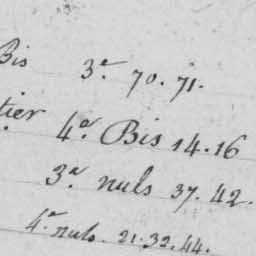 Bis 3.e 70. 71.
tier 4.e Bis 14. 16
3.e nuls 37. 42.
4.e nuls. 21. 32. 44.